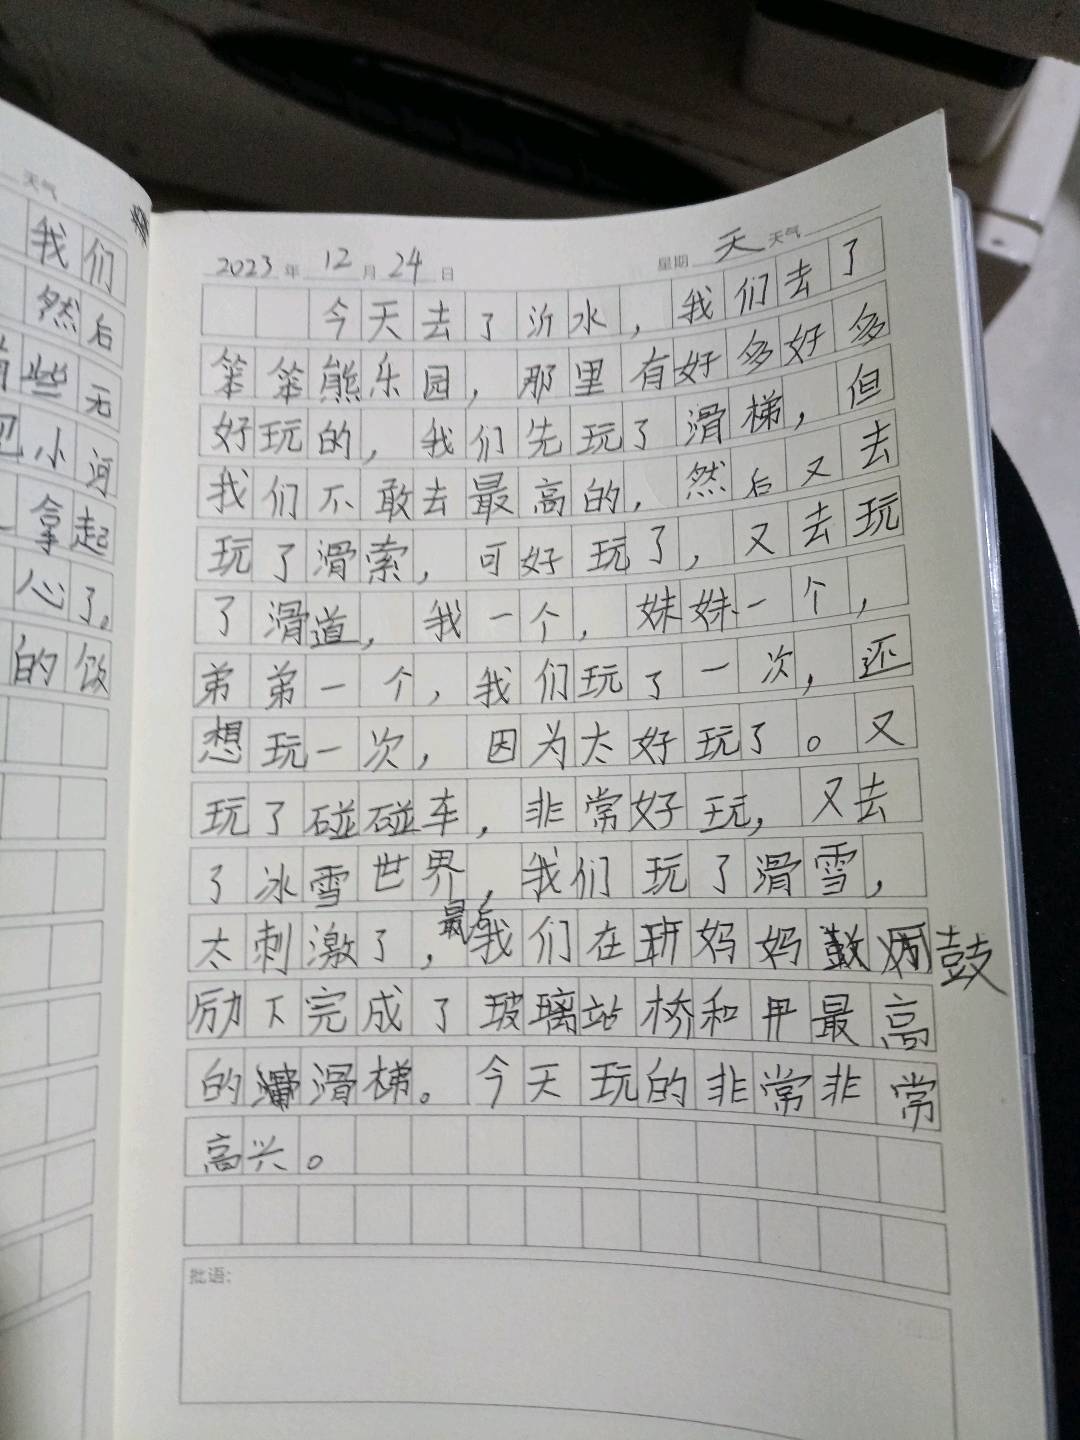 天气
我们
然后
些无
小河
拿起
心了。
的饭
2023年12月24日 星期天 天气
今天去了沂水，我们去了
笨笨熊乐园，那里有好多好多
好玩的，我们先玩了滑梯，但
我们不敢去最高的，然后又去
玩了滑索，可好玩了，又去玩
了滑道，我一个，妹妹一个，
弟弟一个，我们玩了一次，还
想玩一次，因为太好玩了。又
玩了碰碰车，非常好玩，又去
了冰雪世界，我们玩了滑雪，
太刺激了，最后我们在妍妈妈鼓
励下完成了玻璃站桥和最高
的滑梯。今天玩的非常非常
高兴。
批语：